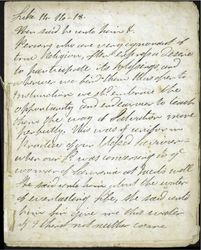 Luke 14. 16-18.
Then said he unto him &.
Persons who are very ignorant of
true Religion, often express desire
to participate its blessings and
wherever we find them thus open to
instruction we sh embrace the
opportunity and endeavour to teach
them the way of Salvation more
perfectly. This was the uniform
practice of our blessed Saviour
when our L was conversing with y
woman of Samaria at Jacobs well
he said unto him about the water
of everlasting life. She said unto
him Sir give me this water
that I thirst not neither come